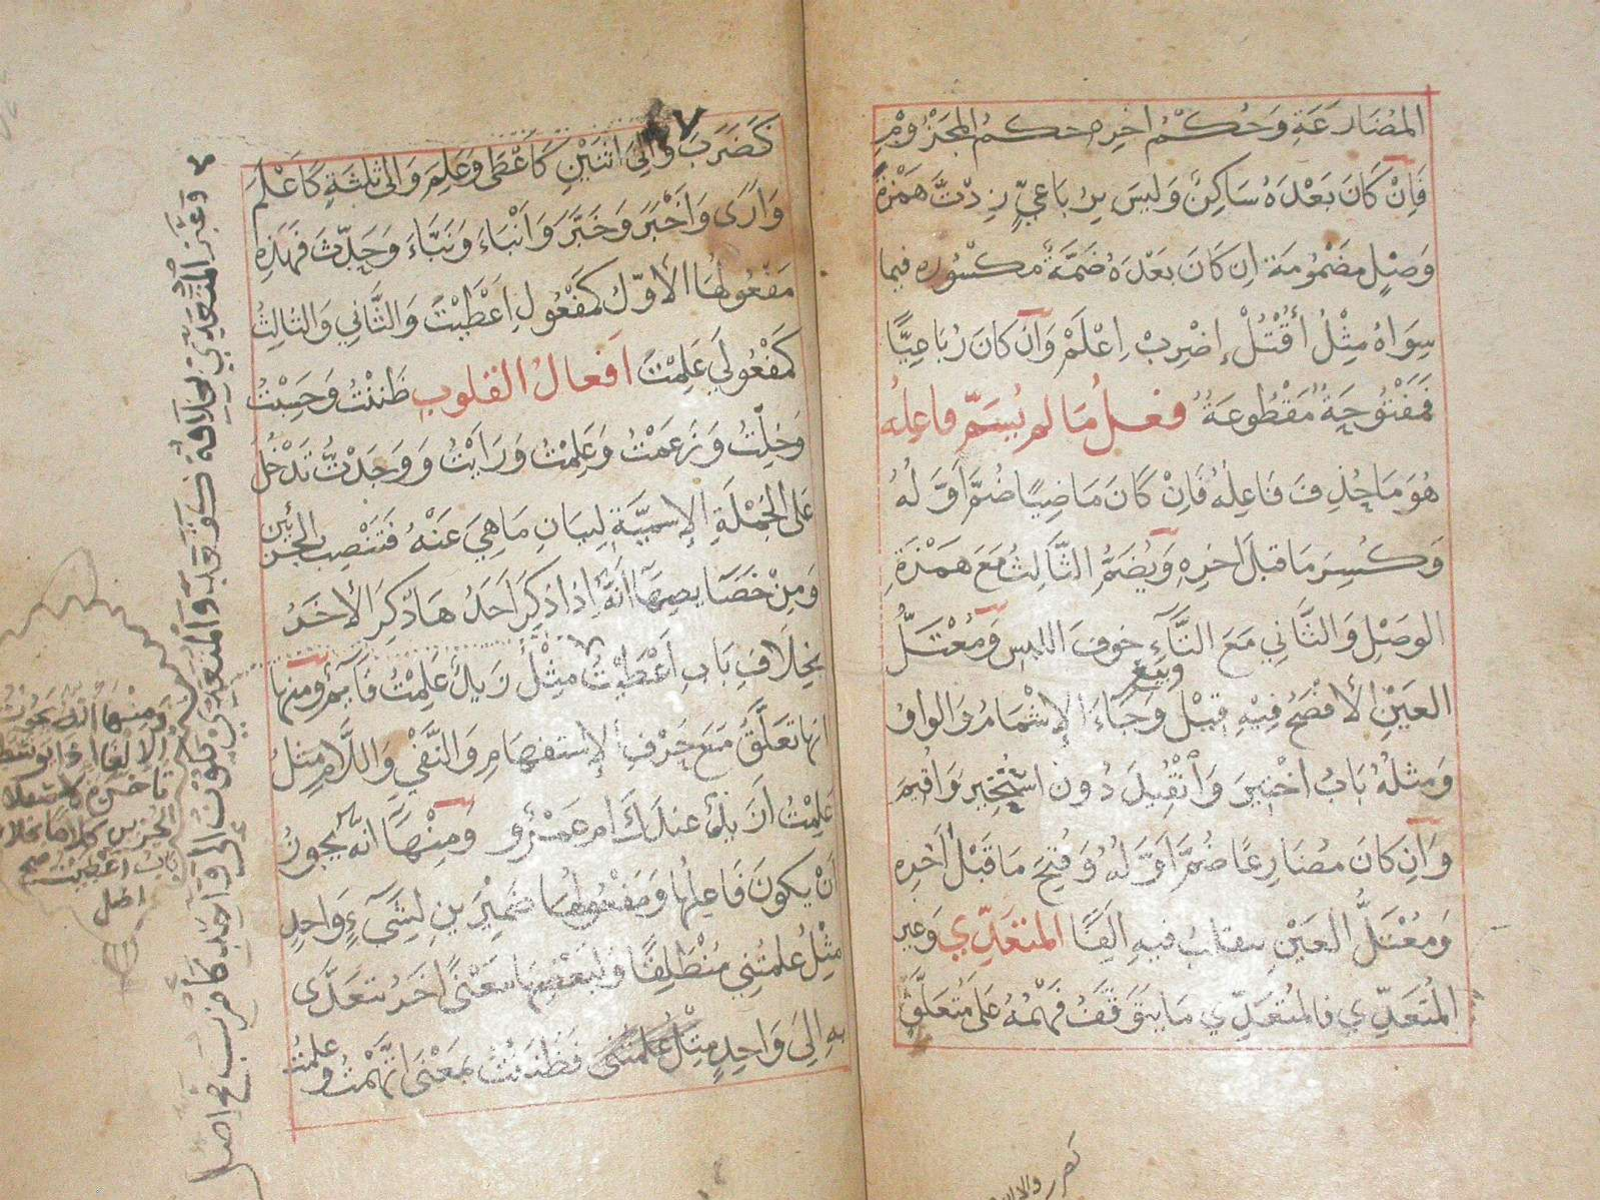 المُضَارَعَةِ وَحُكْمُ اخِرِه حكمُ المجَزُومِ
فَاِنْ كَانَ بَعْدَهُ سَاكِنٌ وَلَيسَ بِرُبَاعِيٍّ زِدْتَّ هَمْزَةَ
وَصْلٍ مَضْمُومَة اِن كَانَ بَعْدَهُ ضَمَّةٌ مكسُوره فيما
سِوَاهُ مِثْلُ أُقْتُلْ إِضْرِبْ اِعْلَمْ وَاِنْ كَانَ رُبَاعِيًّا
فَمَفْتُوحَةٌ مَقْطُوعَةٌ فعلُ مَا لم يُسَمّ فاعِلُه
هُوَ مَا حُذِفَ فَاعِلُهُ فَاِنْ كَانَ مَاضِيًا ضُمَّ اَوَّلُهُ
وَكُسِرَ مَا قبلَ اخرِهِ وَيُضَمُّ الثَّالِثُ مَعَ هَمْزَةِ
الوصْلِ وَالثَّانِي مَعَ التَّآءِ خوفَ اللبس وَمُعْتَلُّ
العَيْنِ الأفْصَحُ فِيْهِ قِيْلَ وَبيعَ وَجَاءَ الإِشْمَامُ وَالواوُ
وَمثلُهُ بَابُ اخْتِيرَ وَاُنْقُيِدَ دُونَ اسْتُخِيرَ وَاُقيمَ
وَاِن كَانَ مُضَارِعًا ضُمَّ اَوَّلُهُ وَفُتِحَ مَا قَبْلَ اخِرِه
وَمُعْتَلُّ العَيْنِ ينقلبُ فيهِ اَلِفًا المتعَدِّي وَغير
المُتَعَدِّي فالمُتعَدِّي مَا يتَوَقَّفُ فَهْمُهُ عَلَى مُتعَلَّقٍ
كَضَرَبَ وَاِلَى اثنَيْنِ كَاَعْطَى وَعَلِمَ وَالَى ثلثَةٍ كَاَعْلَمَ
وَاَرَى وَاَخْبَرَ وَخَبَّرَ وَاَنْبَاءَ وَنَبَّاءَ وَحَدَّثَ فَهَذِه
مَفعُولُهَا الاوّلُ كمَفْعُولِ اَعْطَيْتُ وَالثَّانِي وَالثَالِثُ
كَمَفْعُولَي عَلِمْتُ اَفعالُ القلوبِ ظَننْتُ وَحَسِبْتُ
وَخِلْتُ وَزَعَمْتُ وَعَلِمْتُ وَرَاَيْتُ وَوَجَدْتُ تَدْخُلُ
عَلَى الجُمْلَةِ الإِسميَّةِ لِبَيَانِ مَا هِيَ عَنْهُ فَتَنْصِبُ الجزئين
وَمِنْ خَصَايصِهَا اَنَّهُ اِذَا ذكِرَ اَحَدُهَا ذُكرَ الأخَرُ
بخِلَافِ بَابِ اَعْطَيْتُ مِثْلُ زَيدٌ عَلِمْتُ قَايمٌ ومنها
انهَا تعَلَّقُ مَعَ حَرْفِ الإستفهَامِ وَالنَّفْيِ وَاللَّامِ مثلُ
عَلِمْتُ اَزَيدٌ عندَكَ ام عَمْرٌو وَمِنْهَا انَّهُ يَجُوزُ
اَنْ يكونَ فَاعِلُهَا وَمَفْعُولُهَا ضَميْرَينِ لِشَيءٍ وَاحدٍ
مثْلُ عَلِمتُنِي مُنْطَلِقًا وَلبَعْضِهَا مَعْنًى اخَرُ يتَعَدَّى
بِهِ الَى وَاحِدٍ مِثْلُ فَظَنَنْتُ بمَعْنَى اتَّهَمْتُ وعلمتُ
وَغَيْرُ المُتَعَدِّي بخلَافِهِ كَقَعَدَ وَالْمُتَعَدِّي يكونُ اِلَى وَاحدٍ كَضَرَبَ صح اصل
وَمنْهَا اَنَّهُ يجُوزُ
الإلغَا اِذَا توسّطت او
تاخرت لاستقلال
الجزئين كلامًا بخلاف
باب اعطيت صح
اصل